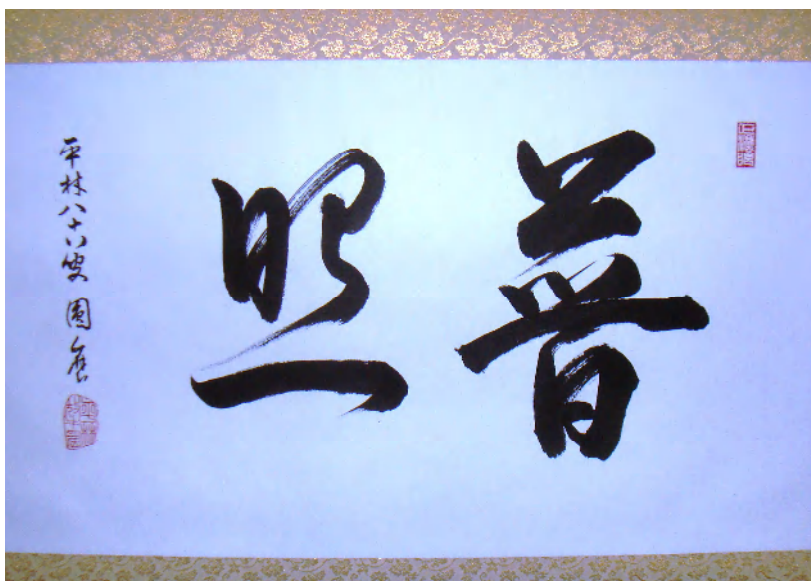 普照
平林八十八叟 園應